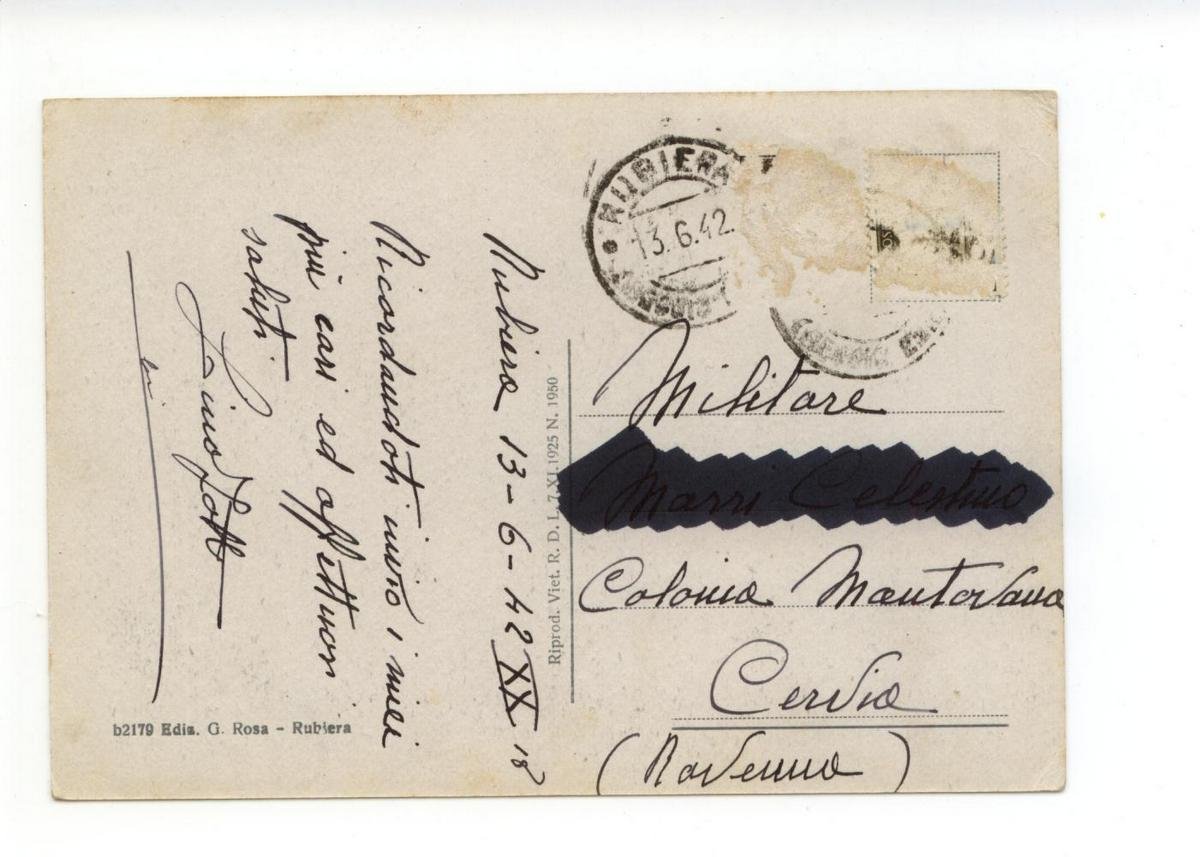 Rubiera 13-6-42 XX 18
Ricordandoti invio i miei
più cari ed affettuosi
saluti
Riprod. Viet. R. D. L. 7.XI.1925 N. 1950
b2179 Ediz. G. Rosa - Rubiera
RUBIERA
13.6.42.
Militare
Marri Celestino
Colonia Mantovana
Cervia
(Ravenna)